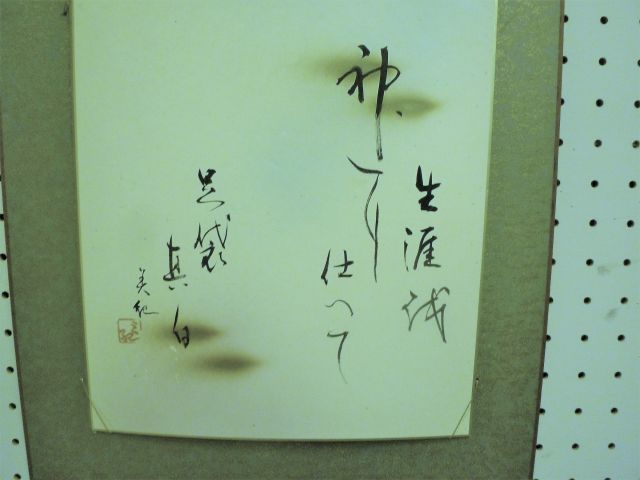 生涯を
神に仕へて
足袋真白
美紀